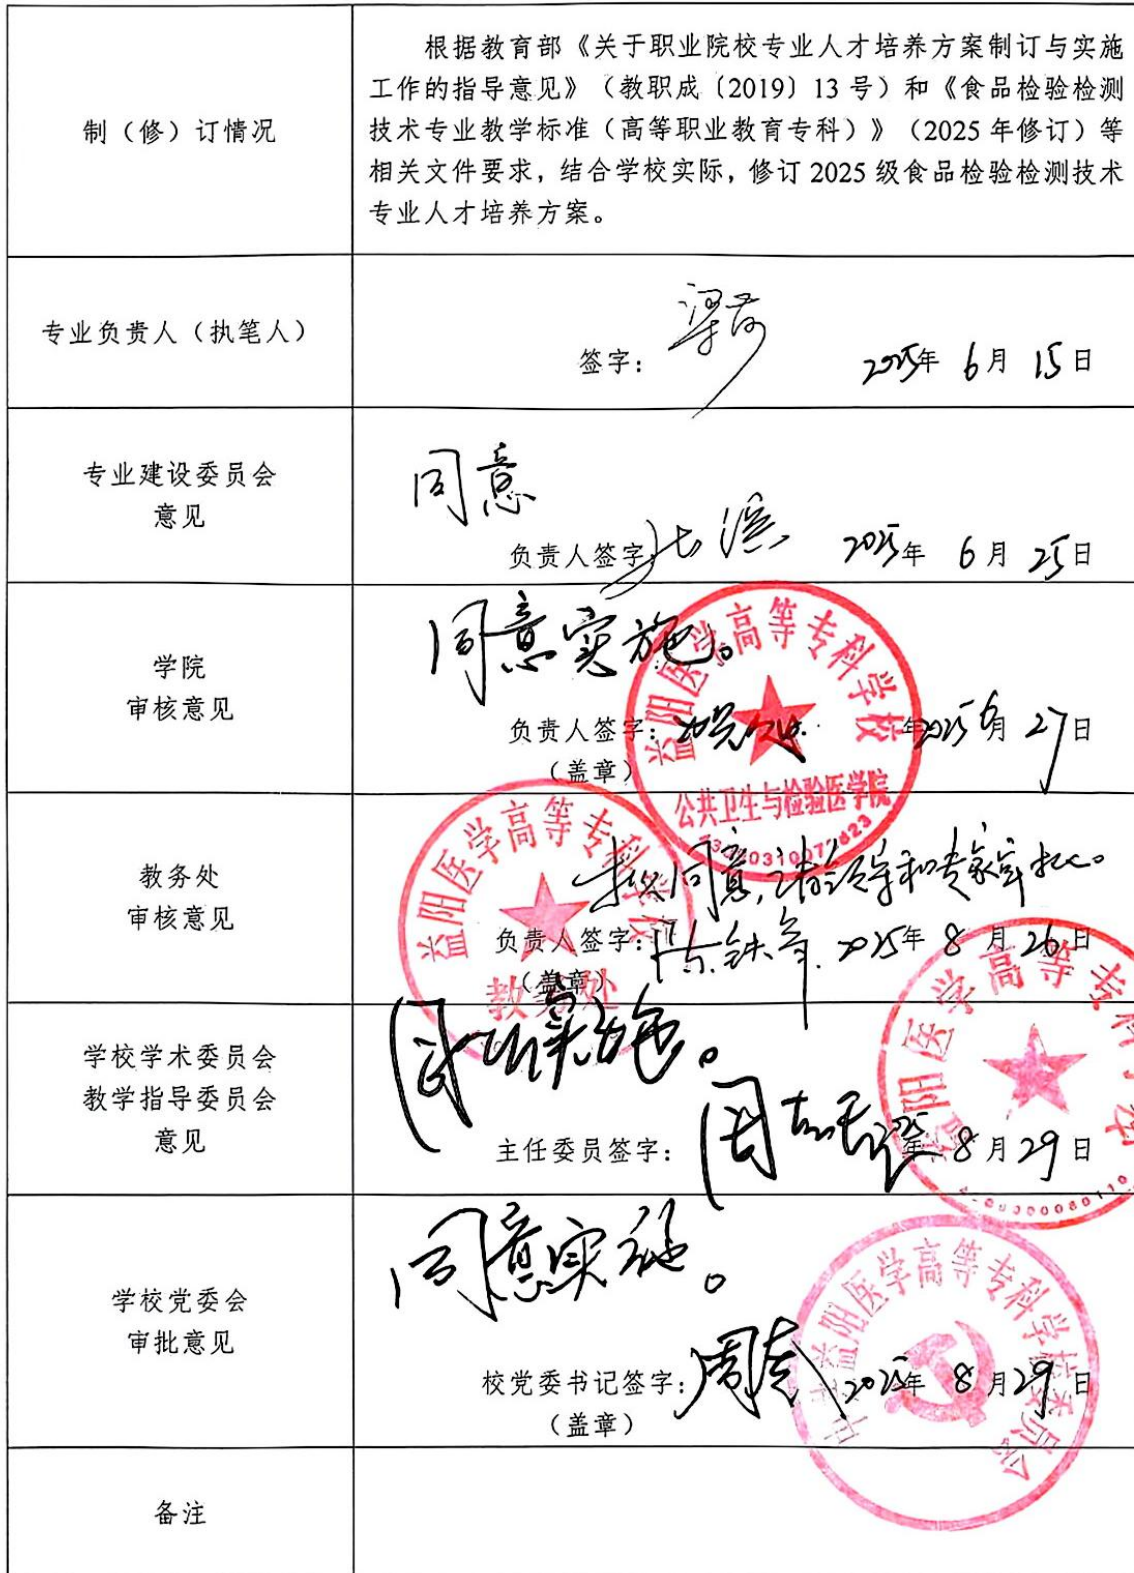 制（修）订情况
根据教育部《关于职业院校专业人才培养方案制订与实施
工作的指导意见》（教职成〔2019〕13 号）和《食品检验检测
技术专业教学标准（高等职业教育专科）》（2025 年修订）等
相关文件要求，结合学校实际，修订 2025 级食品检验检测技术
专业人才培养方案。
专业负责人（执笔人）
签字：
2025年 6月 15日
专业建设委员会
意见
同意
负责人签字
2025年 6月 25日
学院
审核意见
同意实施。
负责人签字：
2025年 6月 27日
（盖章）
益阳医学高等专科学校
公共卫生与检验医学院
教务处
审核意见
同意，请领导和专家审批。
负责人签字：
2025年 8月 26日
（盖章）
益阳医学高等专科学校
教务处
学校学术委员会
教学指导委员会
意见
同意实施。
主任委员签字：
年 8月 29日
益阳医学高等专科学校
学校党委会
审批意见
同意实施。
校党委书记签字：
2025年 8月 29日
（盖章）
中共益阳医学高等专科学校委员会
备注